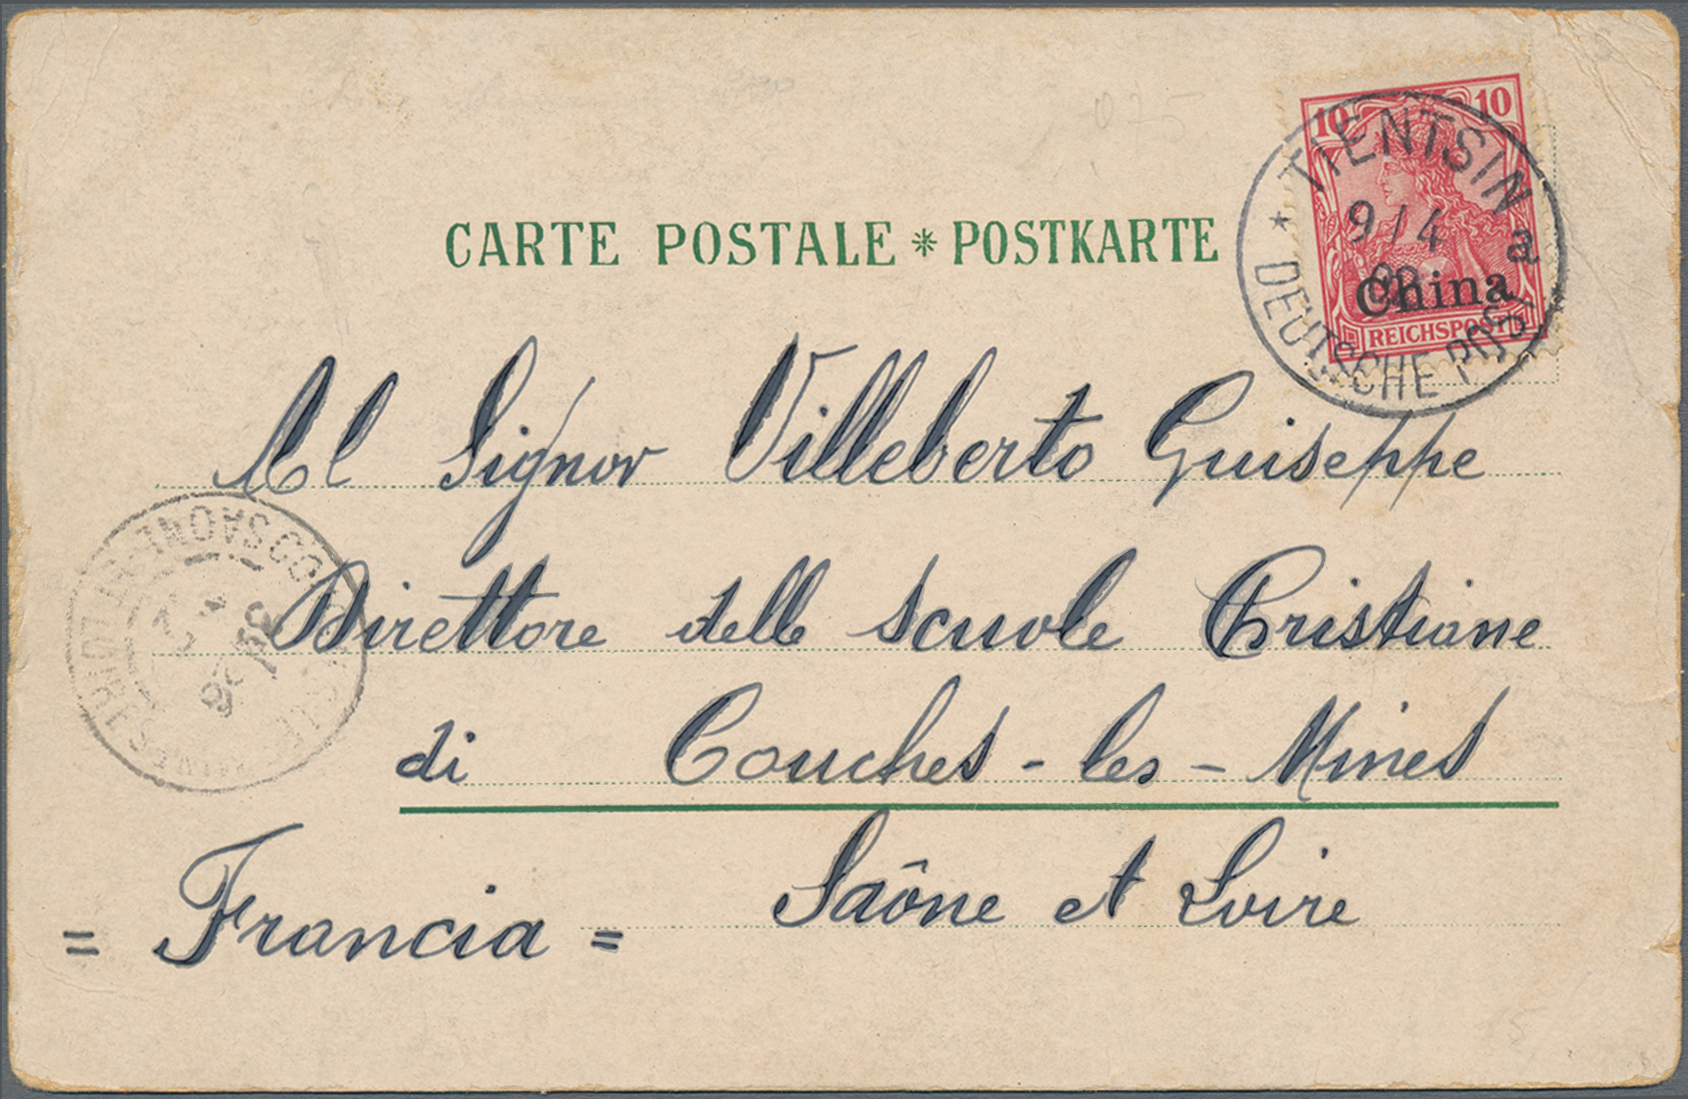 CARTE POSTALE * POSTKARTE
10 10
China
REICHSPOST
* TIENTSIN a
9/4
DEUTSCHE POST
Al Signor Villeberto Guiseppe
Direttore delle Scuole Cristiane
di Couches - les - Mines
Saône et Loire
= Francia =